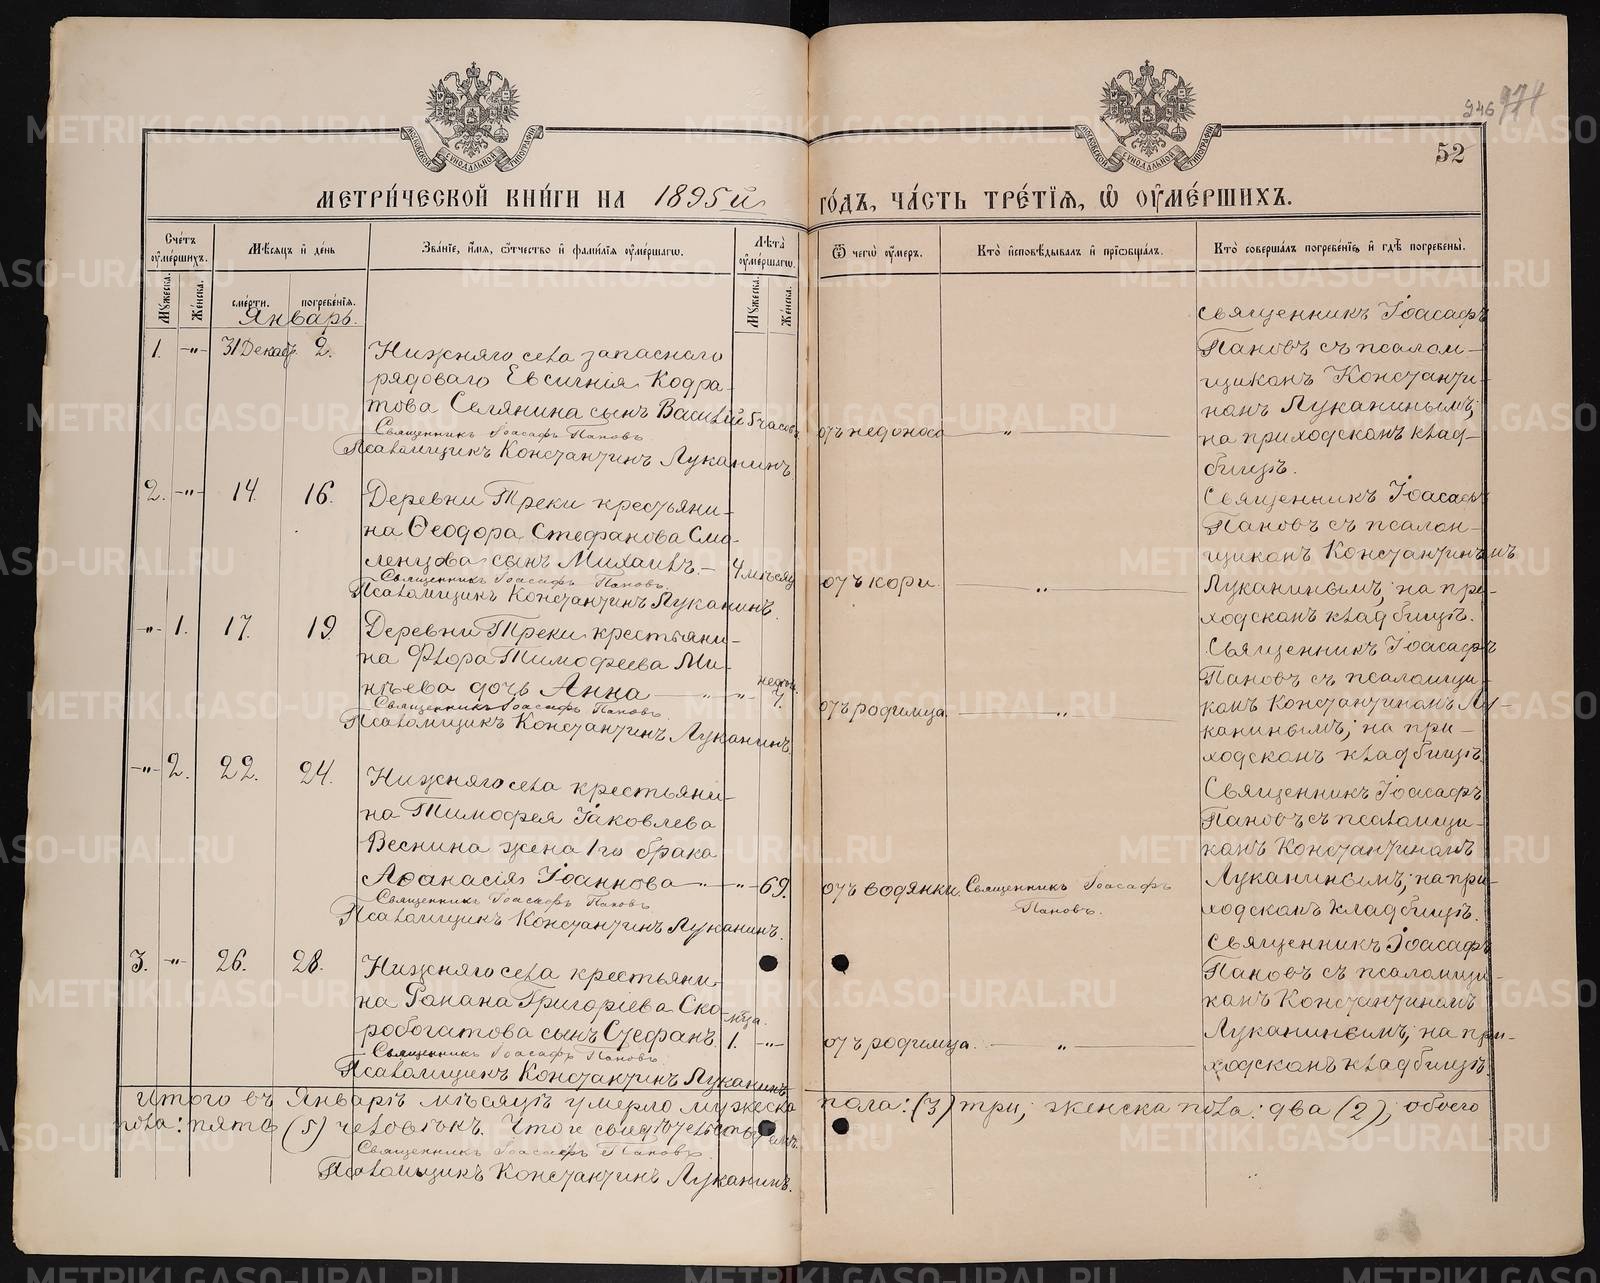 946 974
52
МОСКОВСКОЙ СѴНОДАЛЬНОЙ ТИПОГРАФІИ
МОСКОВСКОЙ СѴНОДАЛЬНОЙ ТИПОГРАФІИ
МЕТРИ́ЧЕСКОЙ КНИ́ГИ НА 1895й ГО́ДЪ, ЧА́СТЬ ТРЕ́ТІѦ, Ѡ҆ ОУ҆МЕ́РШИХЪ.
Сче́тъ оу҆ме́ршихъ.
Мꙋ́жеска. Же́нска.
Мѣ́сѧцъ и҆ де́нь
сме́рти. погребе́нїѧ.
Зва́нїе, и҆́мѧ, ѻ҆́тчество и҆ фами́лїѧ оу҆ме́ршагѡ.
Лѣ́та оу҆ме́ршагѡ.
Мꙋ́жеска. Же́нска.
Ѿ чегѡ̀ оу҆́меръ.
Кто̀ и҆сповѣ́дывалъ и҆ прїѡбща́лъ.
Кто̀ соверша́лъ погребе́нїе, и҆ гдѣ̀ погребены̀.
Январь.
1. -„- 31 Декаб. 2.
Нижняго села запаснаго
рядоваго Евсигнія Кодра-
това Селянина сынъ Василій 5 часовъ
Священникъ Іоасафъ Пановъ
Псаломщикъ Константинъ Луканинъ
отъ недоноса „
Священникъ Іоасафъ
Пановъ съ псалом-
щикомъ Константи-
номъ Луканинымъ;
на приходскомъ клад-
бищѣ.
2. -„- 14. 16.
Деревни Треки крестьяни-
на Ѳеодора Стефанова Смо-
ленцова сынъ Михаилъ. 4 мѣсяц
Священникъ Іоасафъ Пановъ.
Псаломщикъ Константинъ Луканинъ.
отъ кори „
Священникъ Іоасафъ
Пановъ съ псалом-
щикомъ Константиномъ
Луканинымъ; на при-
ходскомъ кладбищѣ.
-„- 1. 17. 19.
Деревни Треки крестьяни-
на Флора Тимофеева Ми-
нѣева дочь Анна -„- недѣли 7.
Священникъ Іоасафъ Пановъ
Псаломщикъ Константинъ Луканинъ.
отъ родимца „
Священникъ Іоасафъ
Пановъ съ псаломщи-
комъ Константиномъ Лу-
канинымъ; на при-
ходскомъ кладбищѣ.
-„- 2. 22. 24.
Нижняго села крестьяни-
на Тимофея Іаковлева
Веснина жена 1го брака
Аѳанасія Іоаннова -„- 69.
Священникъ Іоасафъ Пановъ
Псаломщикъ Константинъ Луканинъ.
отъ водянки. Священникъ Іоасафъ
Пановъ.
Священникъ Іоасафъ
Пановъ съ псаломщи-
комъ Константиномъ
Луканинымъ; на при-
ходскомъ кладбищѣ.
3. -„- 26. 28.
Нижняго села крестьяни-
на Романа Григоріева Ско-
робогатова сынъ Стефанъ. 1. мѣца. -„-
Священникъ Іоасафъ Пановъ
Псаломщикъ Константинъ Луканинъ
отъ родимца. „
Священникъ Іоасафъ
Пановъ съ псаломщи-
комъ Константиномъ
Луканинымъ; на при-
ходскомъ кладбищѣ.
Итого въ Январѣ мѣсяцѣ умерло мужеска пола: (3) три; женска пола: два (2); обоего
пола: пять (5) человѣкъ. Что и свидѣтельствуемъ.
Священникъ Іоасафъ Пановъ.
Псаломщикъ Константинъ Луканинъ.
METRIKI.GASO-URAL.RU